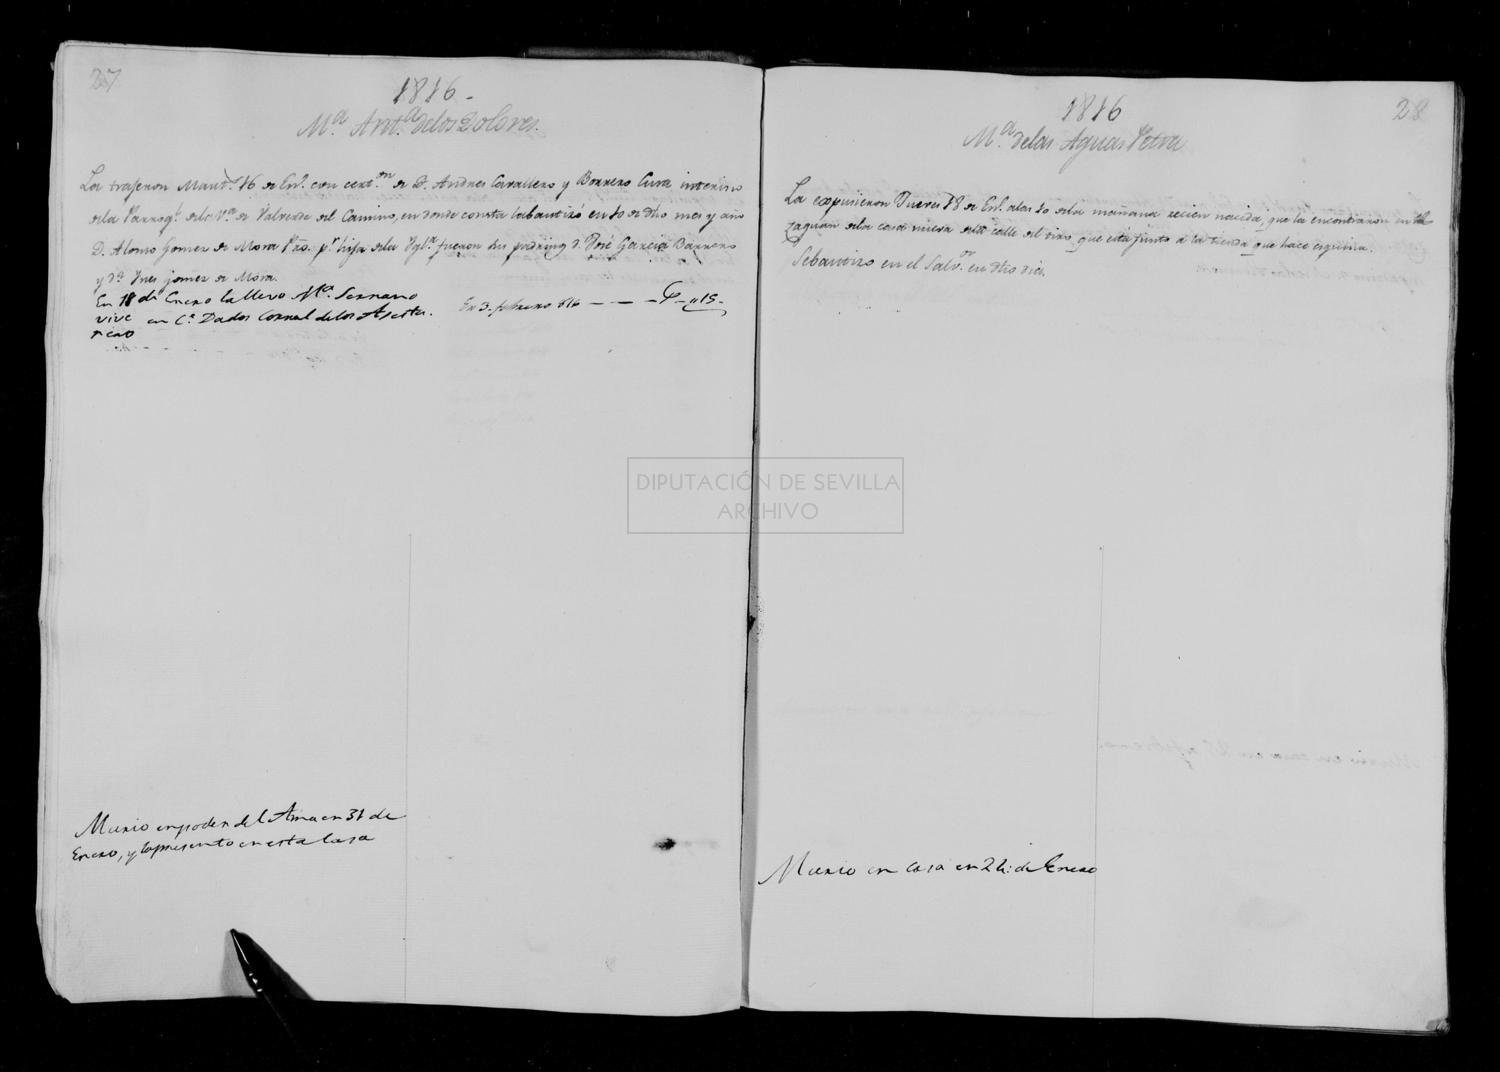 27
1816 -
Mª Antª delos Dolores.
La trageron Mart.s 16 de En.º con cert.on de D. Andres Cavallero y Borrero Cura interino
dela Parroq.l dela V.ª de Valverde del Camino, en donde consta la bautizó en 10 de dho mes y año
D. Alonso Gomez de Mora Pro. p.r hija dela Ygl.ª fueron sus padrinos D. José Garcia Borrero
y D.ª Ynes Gomez de Mora.
En 18 de Enero la llevo Mª. Serrano
vive en C.e Dados Corral delos
En 3. febrero 816 - - - " 15
Murio en poder del Ama en 31 de
Enero, y la presento en esta Casa
28
1816
Mª. delas Aguas Petra
La expusieron Jueves 18 de En.º alas 10 dela mañana recien nacida, que la encontraron en el
zaguan dela casa nueva dela calle del tiro, que esta junto a la tienda que hace esquina.
Sebautizo en el Salv.or en dho dia.
Murio en casa en 24: de Enero
DIPUTACIÓN DE SEVILLA
ARCHIVO